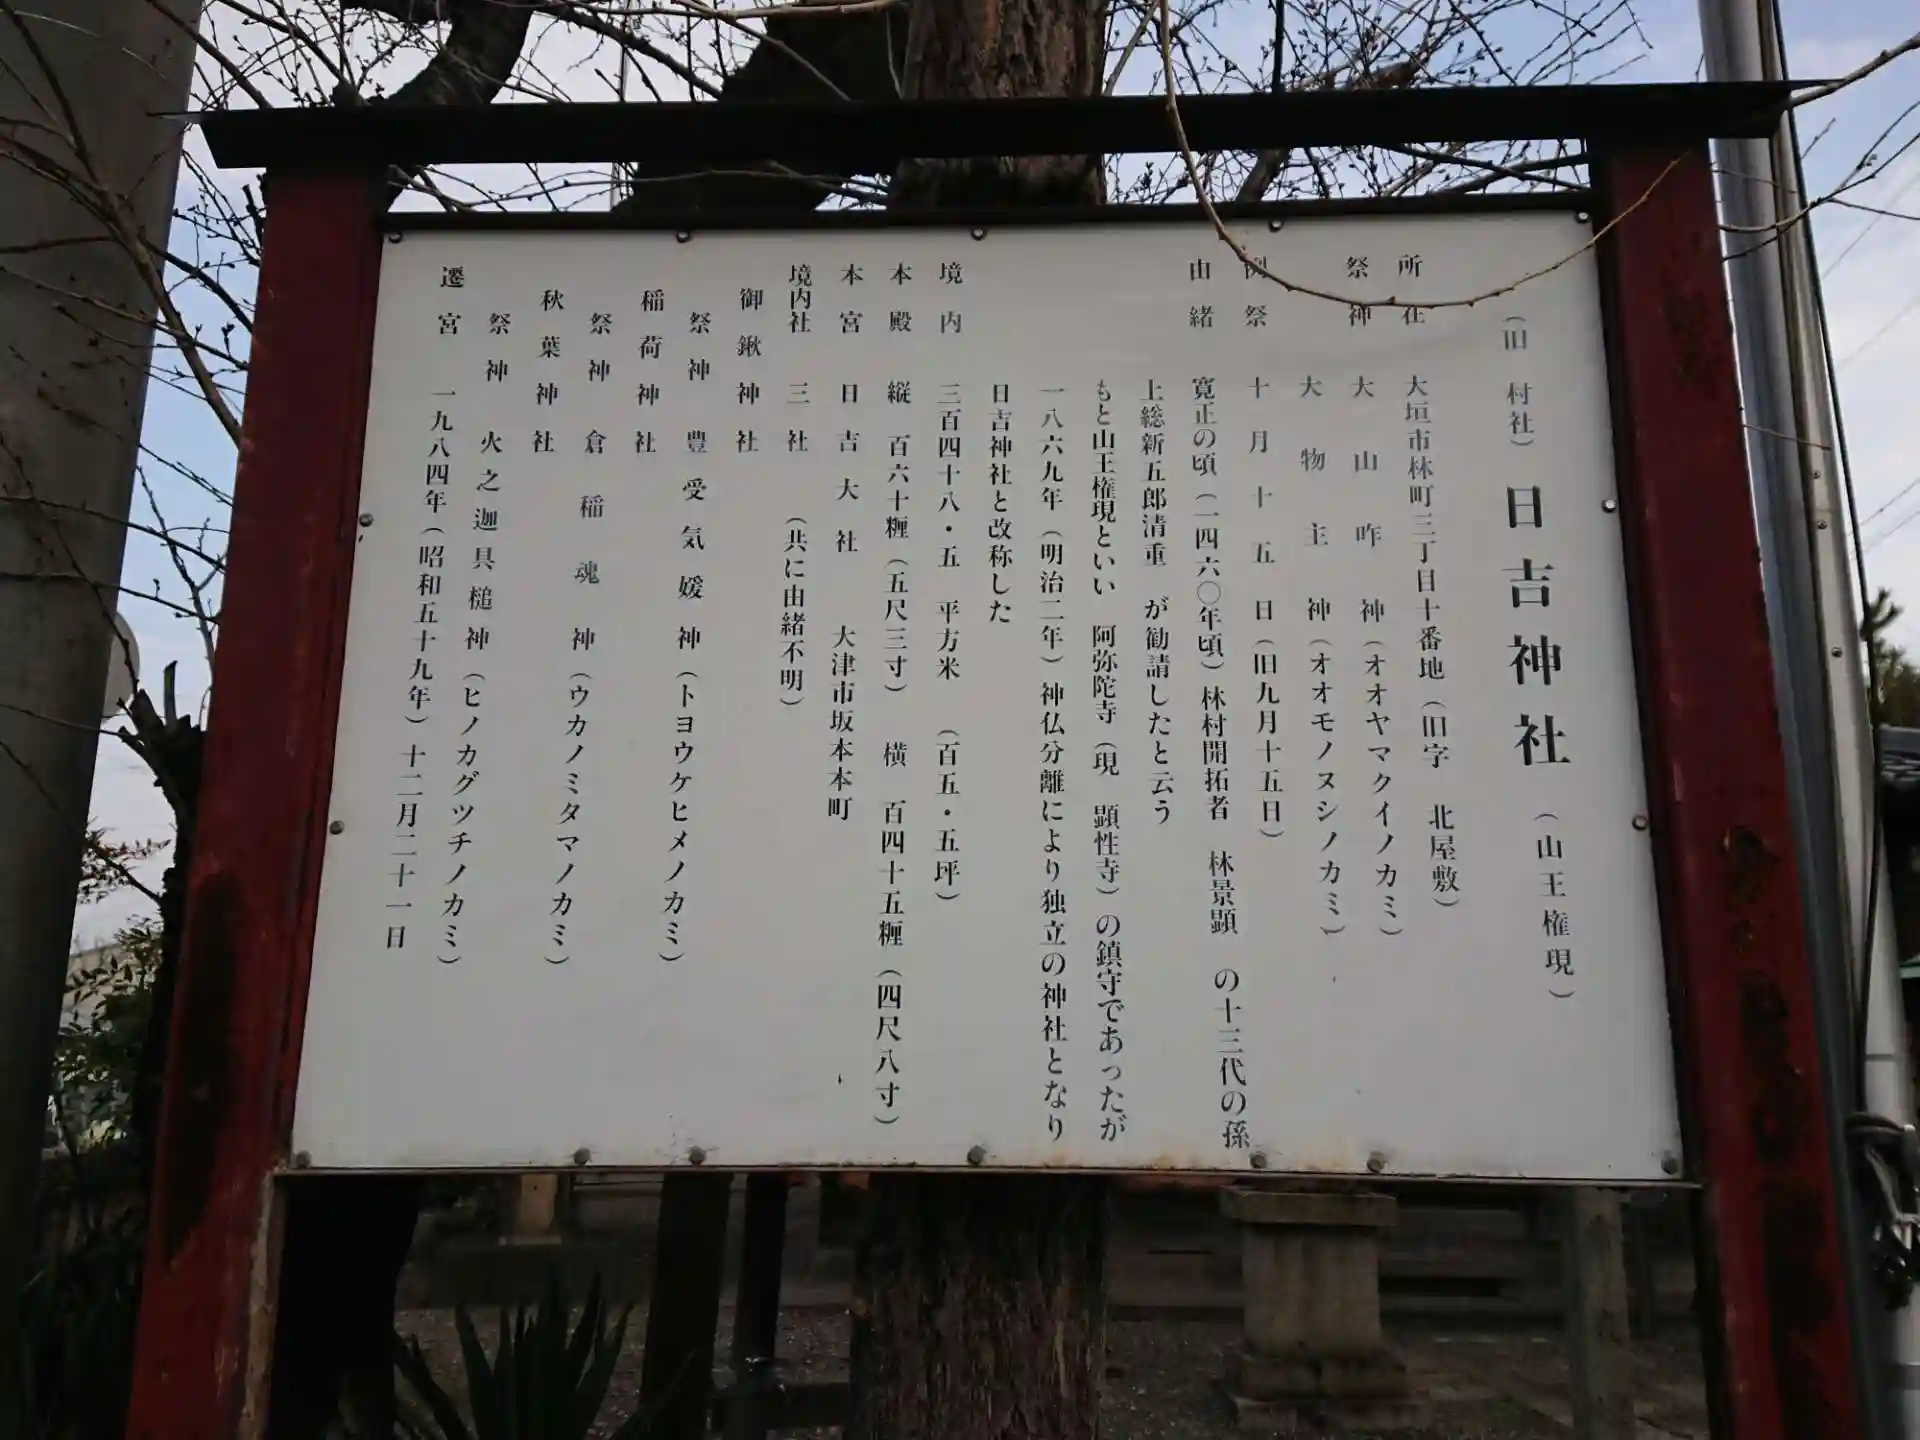 （旧村社）日吉神社（山王権現）
所在 大垣市林町三丁目十番地（旧字 北屋敷）
祭神 大山咋神（オオヤマクイノカミ）
大物主神（オオモノヌシノカミ）
例祭 十月十五日（旧九月十五日）
由緒 寛正の頃（一四六〇年頃）林村開拓者 林景顕 の十三代の孫
上総新五郎清重 が勧請したと云う
もと山王権現といい 阿弥陀寺（現 顕性寺）の鎮守であったが
一八六九年（明治二年）神仏分離により独立の神社となり
日吉神社と改称した
境内 三百四十八・五 平方米 （百五・五坪）
本殿 縦 百六十糎（五尺三寸） 横 百四十五糎（四尺八寸）
本宮 日吉大社 大津市坂本本町
境内社 三社 （共に由緒不明）
御鍬神社
祭神 豊受気媛神（トヨウケヒメノカミ）
稲荷神社
祭神 倉稲魂神（ウカノミタマノカミ）
秋葉神社
祭神 火之迦具槌神（ヒノカグツチノカミ）
遷宮 一九八四年（昭和五十九年）十二月二十一日